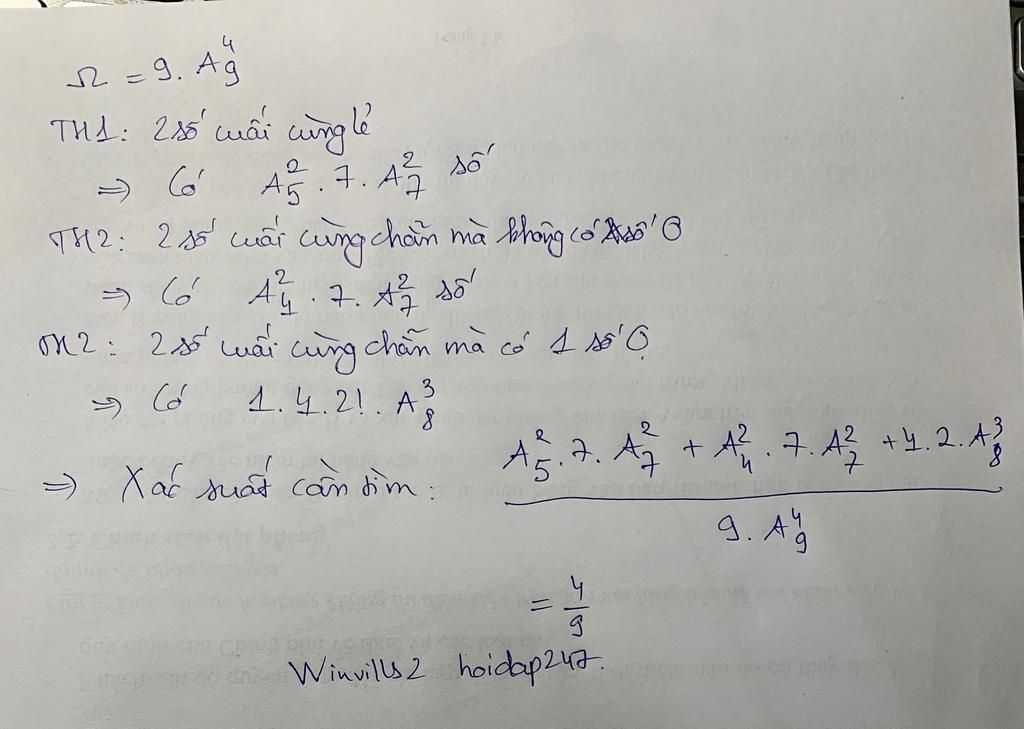 Ω = 9. A⁴₉
TH1: 2 số cuối cùng lẻ
⇒ Có A²₅ . 7. A²₇ số
TH2: 2 số cuối cùng chẵn mà không có số 0
⇒ Có A²₄ . 7. A²₇ số
TH2: 2 số cuối cùng chẵn mà có 1 số 0.
⇒ Có 1.4.2! A³₈
⇒ Xác suất cần tìm: (A²₅ . 7. A²₇ + A²₄ . 7. A²₇ + 4.2. A³₈) / (9. A⁴₉)
= 4/9
Winvills2 hoidap247.